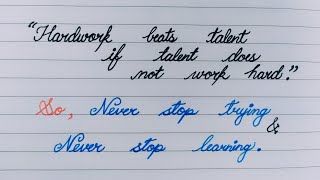 "Hardwork beats talent
if talent does
not work hard."
So, Never stop trying
&
Never stop learning.